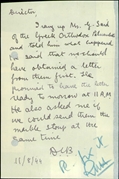 Director
I rang up Mr. G. Said
of the Greek Orthodox Church
and told him what happened
said that we should
have obtained a letter
from them first. He
promised to have the letter
ready to-morrow at 11 A.M.
He also asked me if
we could send them the
marble slab at the
same time
15/8/44